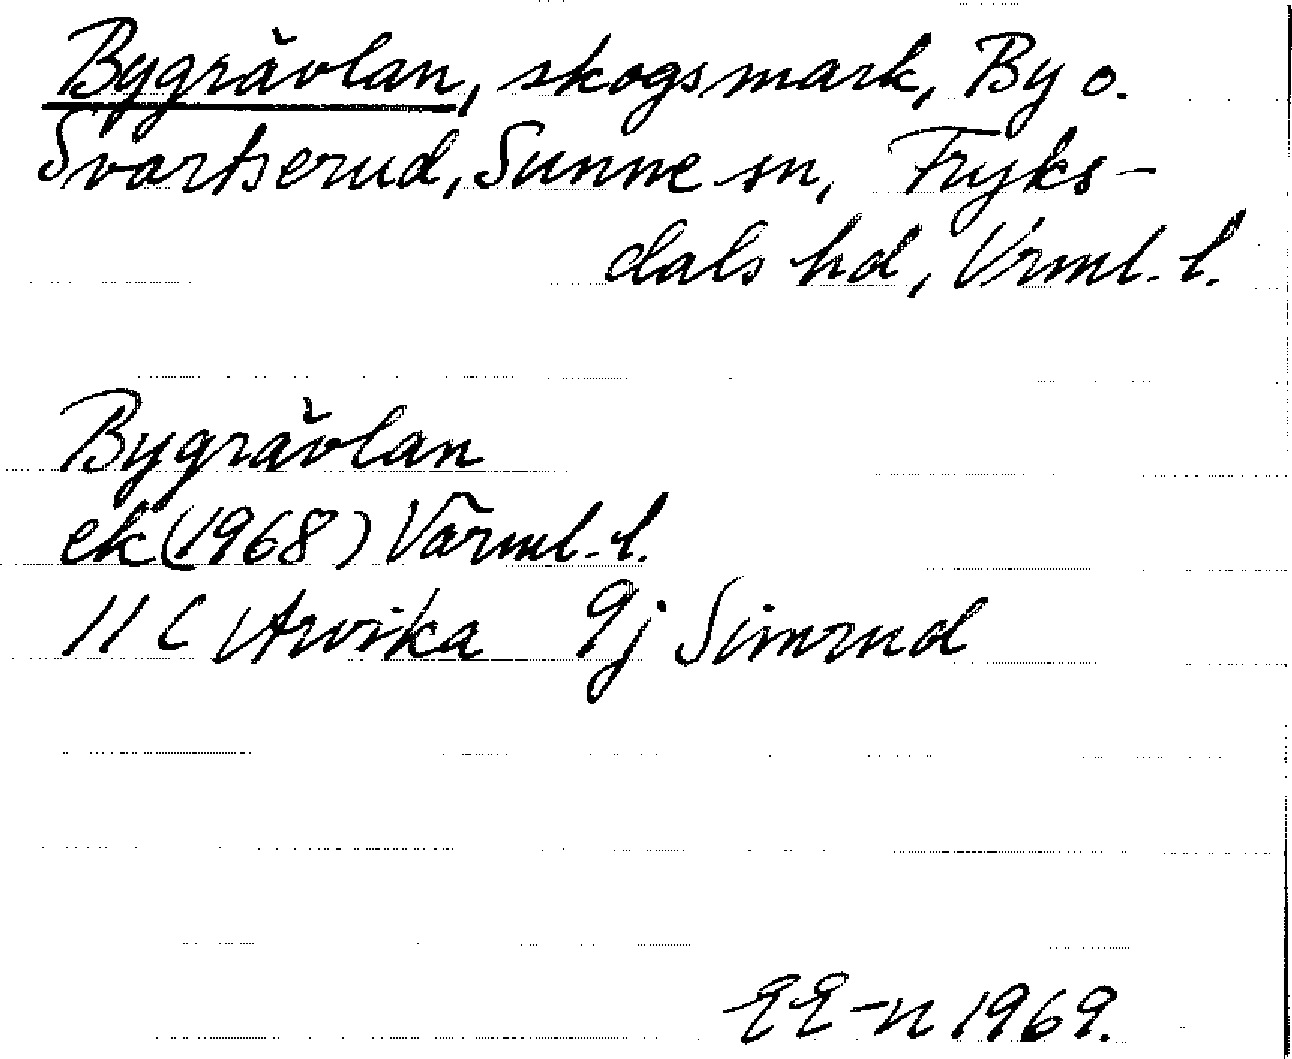 Bygrävlan, skogsmark, By o.
Svartserud, Sunne sn, Fryks-
dals hd, Vrml. l.
Bygrävlan
ek (1968) Värml. l.
11 C Arvika 9j Simrud
EE-n 1969.